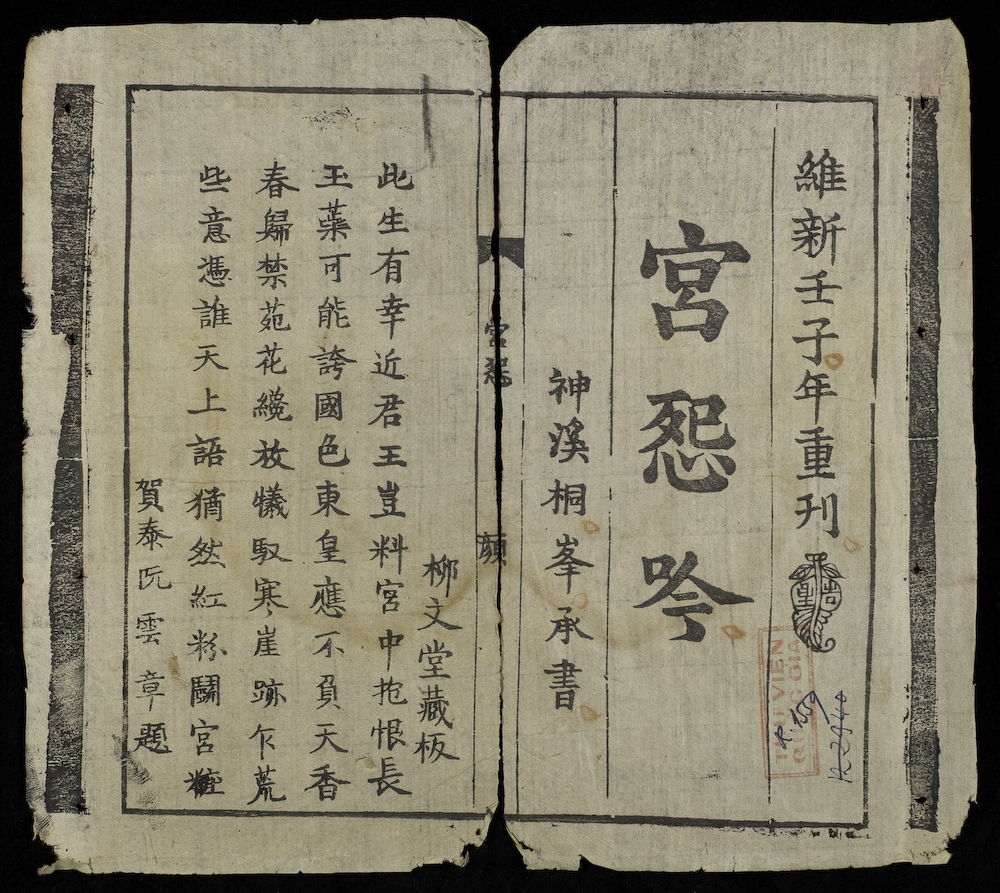 維新壬子年重刊
宮怨吟
神溪桐峯承書
宮怨 顔
柳文堂藏板
此生有幸近君王豈料宮中抱恨長
玉薬可能誇國色東皇應不負天香
春歸禁苑花纔放犧馭寒崖跡乍荒
些意憑誰天上語猶然紅粉鬪宮粧
賀泰阮雲章題
THƯ VIỆN
QUỐC GIA